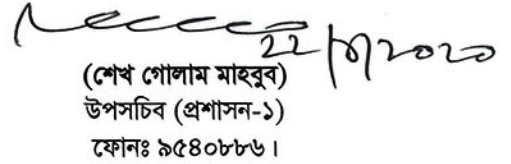 (শেখ গোলাম মাহবুব)
উপসচিব (প্রশাসন-১)
ফোনঃ ৯৫৪০৮৮৬।